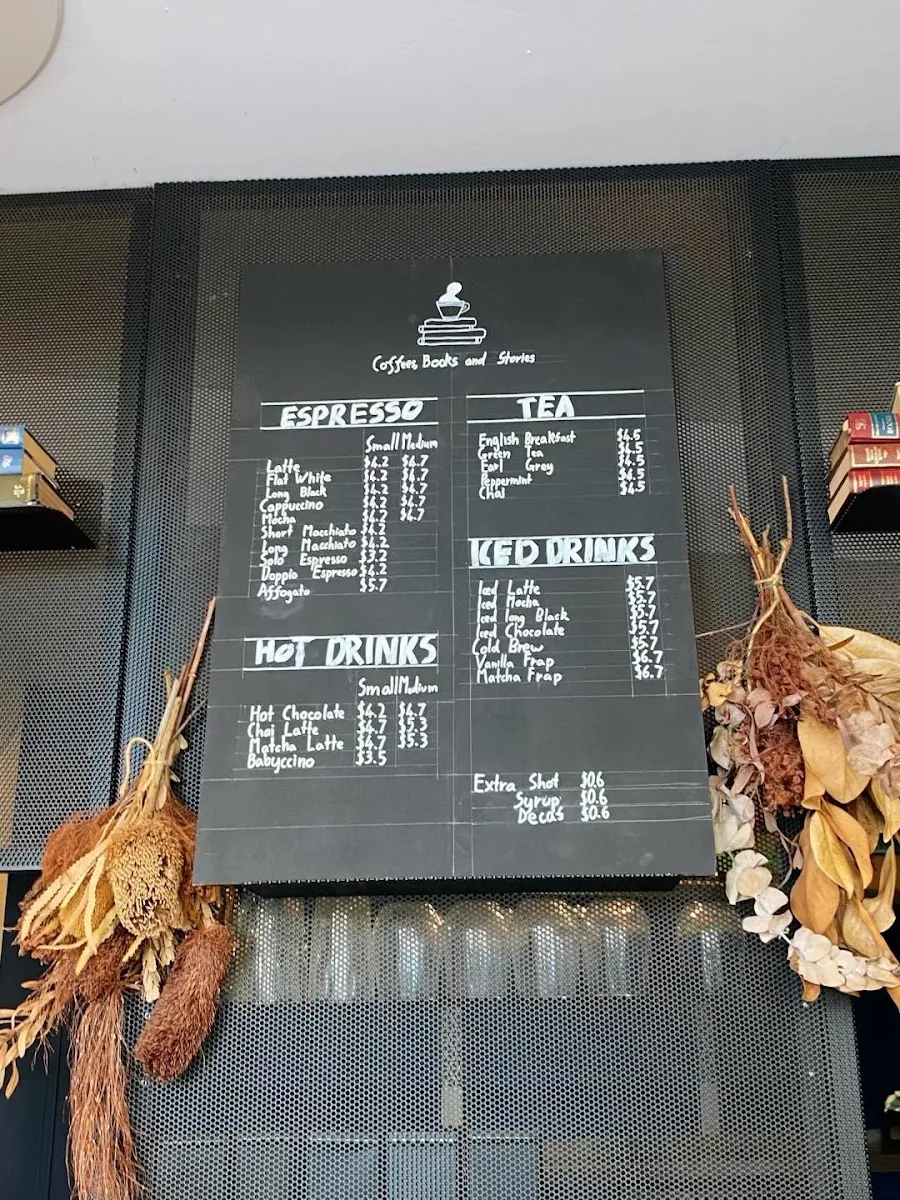 Coffees, Books and Stories
ESPRESSO
Small Medium
Latte $4.2 $4.7
Flat White $4.2 $4.7
Long Black $4.2 $4.7
Cappuccino $4.2 $4.7
Mocha $4.2 $4.7
Short Macchiato $4.2
Long Macchiato $4.2
Solo Espresso $3.2
Doppio Espresso $4.2
Affogato $5.7
HOT DRINKS
Small Medium
Hot Chocolate $4.2 $4.7
Chai Latte $4.7 $5.3
Matcha Latte $4.7 $5.3
Babyccino $3.5
TEA
English Breakfast $4.5
Green Tea $4.5
Earl Grey $4.5
Peppermint $4.5
Chai $4.5
ICED DRINKS
Iced Latte $5.7
Iced Mocha $5.7
Iced long Black $5.7
Iced Chocolate $5.7
Cold Brew $5.7
Vanilla Frap $6.7
Matcha Frap $6.7
Extra Shot $0.6
Syrup $0.6
Decaf $0.6